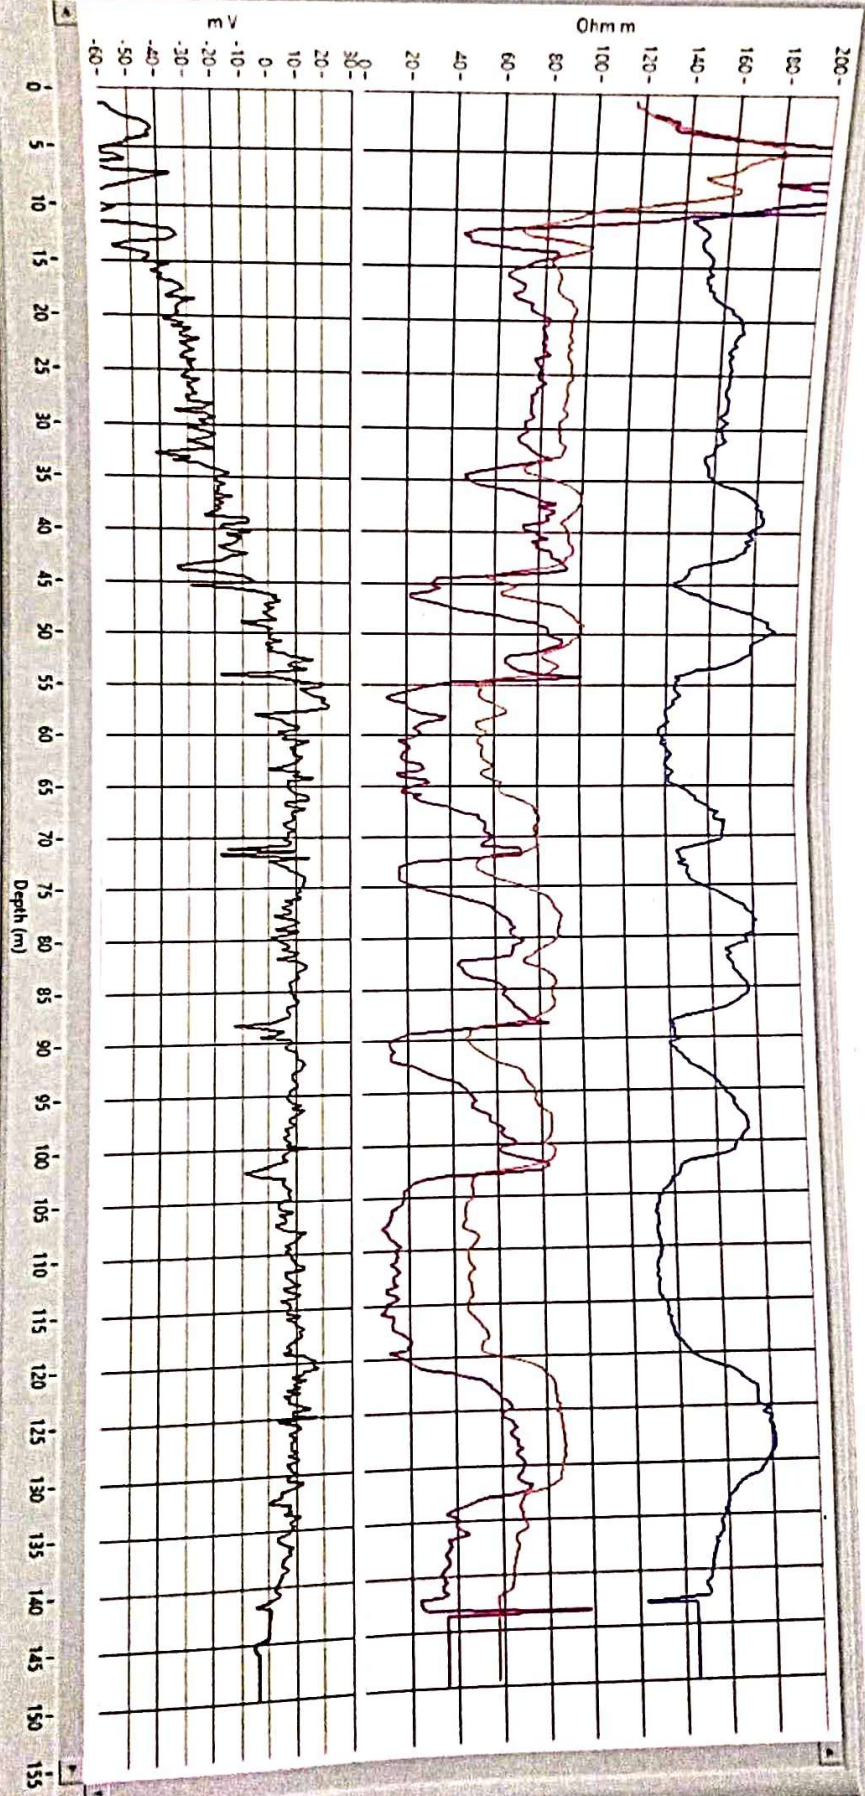 mV
Ohm m
-60
-50
-40
-30
-20
-10
0
10
20
30
0
20
40
60
80
100
120
140
160
180
200
0
5
10
15
20
25
30
35
40
45
50
55
60
65
70
75
80
85
90
95
100
105
110
115
120
125
130
135
140
145
150
155
Depth (m)